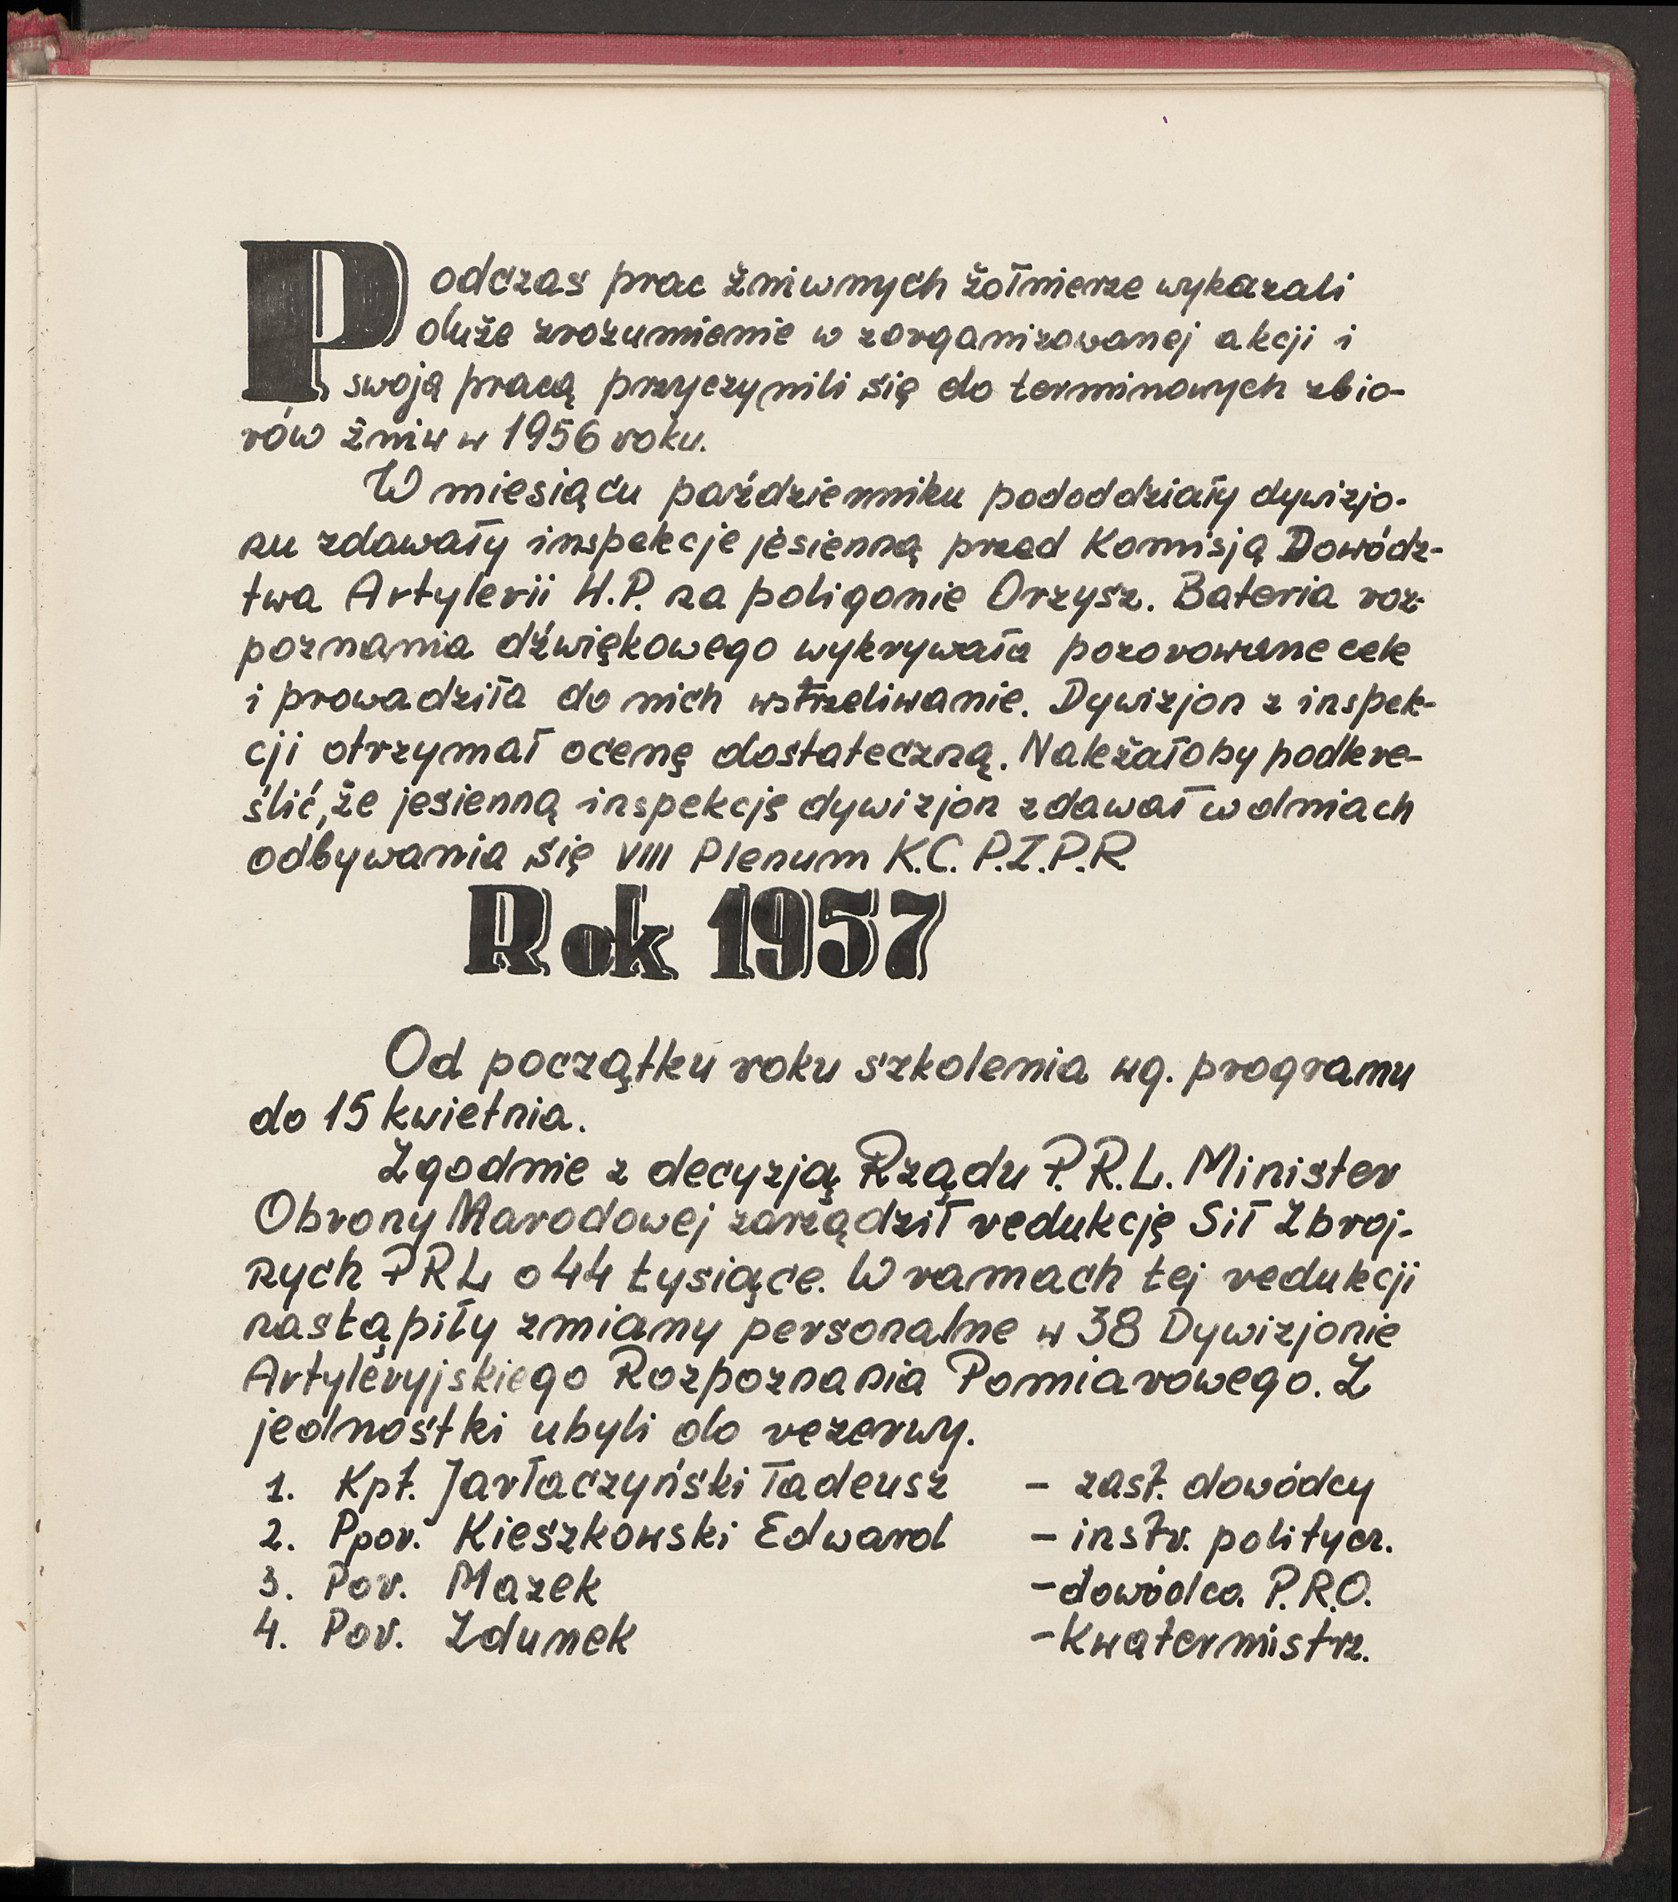 Podczas prac żniwnych żołnierze wykazali
duże zrozumienie w zorganizowanej akcji i
swoją pracą przyczynili się do terminowych zbio-
rów żniw w 1956 roku.
W miesiącu październiku pododdziały dywizjo-
nu zdawały inspekcje jesienną przed Komisją Dowódz-
twa Artylerii W.P. na poligonie Orzysz. Bateria roz-
poznania dźwiękowego wykrywała pozorowane cele
i prowadziła do nich wstrzeliwanie. Dywizjon z inspek-
cji otrzymał ocenę dostateczną. Należałoby podkre-
ślić, że jesienną inspekcję dywizjon zdawał w dniach
odbywania się VIII Plenum K.C. P.Z.P.R
Rok 1957
Od początku roku szkolenia wg. programu
do 15 kwietnia.
Zgodnie z decyzją Rządu P.R.L. Minister
Obrony Narodowej zarządził redukcję Sił Zbroj-
nych PRL o 44 tysiące. W ramach tej redukcji
nastąpiły zmiany personalne w 38 Dywizjonie
Artyleryjskiego Rozpoznania Pomiarowego. Z
jednostki ubyli do rezerwy.
1. Kpt. Jarłaczyński Tadeusz – zast. dowódcy
2. Ppor. Kieszkowski Edward – instr. politycz.
3. Por. Mazek – dowódca P.R.O.
4. Por. Zdunek – Kwatermistrz.